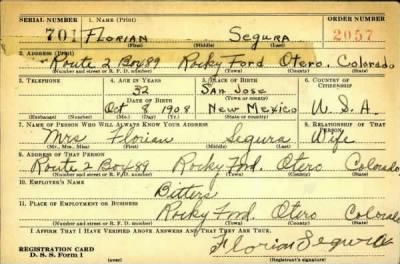 SERIAL NUMBER 1. NAME (Print) ORDER NUMBER
701 FLORIAN SEGURA 2057
(First) (Middle) (Last)
2. ADDRESS (Print)
Route 2 Box 89 Rocky Ford Otero. Colorado
(Number and street or R. F. D. number) (Town) (County) (State)
3. TELEPHONE 4. AGE IN YEARS 5. PLACE OF BIRTH 6. COUNTRY OF CITIZENSHIP
32 San Jose
(Town or county)
DATE OF BIRTH
Oct 8 1908 New Mexico U. S. A.
(Exchange) (Number) (Mo.) (Day) (Yr.) (State or country)
7. NAME OF PERSON WHO WILL ALWAYS KNOW YOUR ADDRESS 8. RELATIONSHIP OF THAT PERSON
Mrs Florian Segura Wife
(Mr., Mrs., Miss) (First) (Middle) (Last)
9. ADDRESS OF THAT PERSON
Route 2 Box 89 Rocky Ford. Otero Colorado
(Number and street or R. F. D. number) (Town) (County) (State)
10. EMPLOYER'S NAME
Bitters
11. PLACE OF EMPLOYMENT OR BUSINESS
Rocky Ford. Otero Colorado
(Number and street or R. F. D. number) (Town) (County) (State)
I AFFIRM THAT I HAVE VERIFIED ABOVE ANSWERS AND THAT THEY ARE TRUE.
REGISTRATION CARD Florian Segura
D. S. S. Form 1 (over) (Registrant's signature)